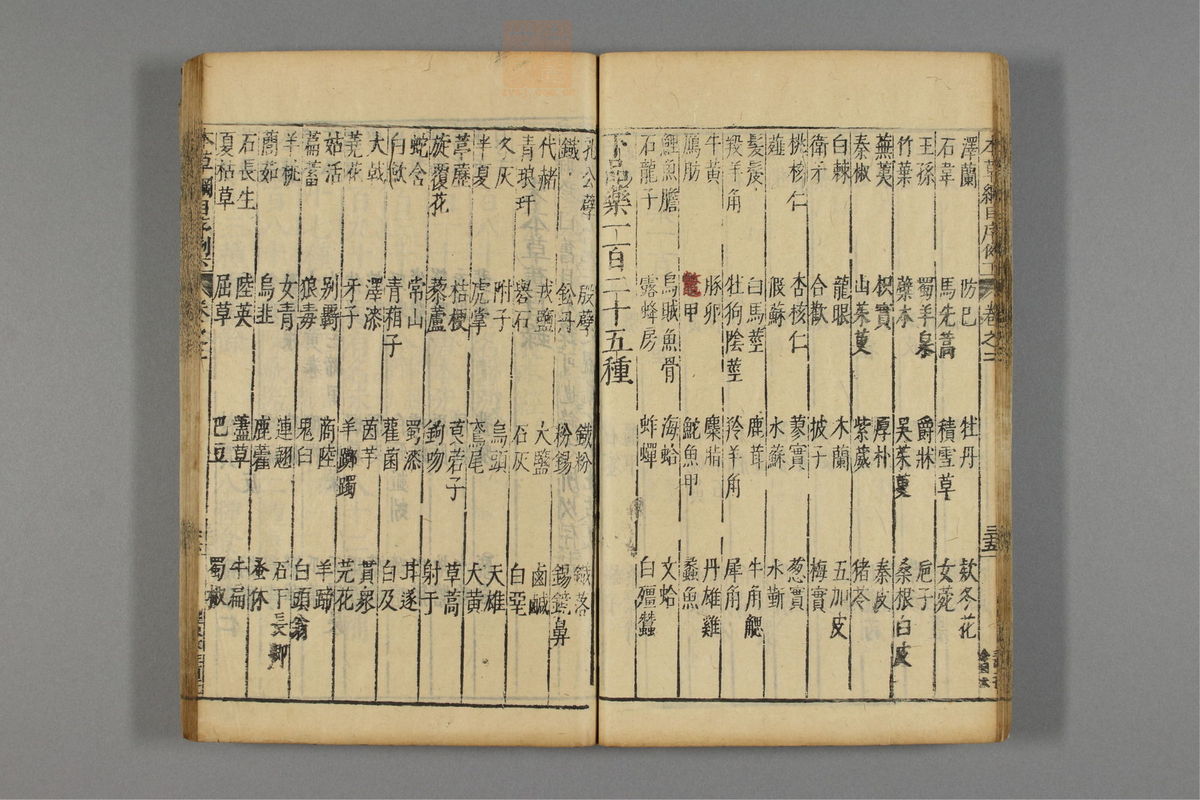 澤蘭 防巴 牡丹 欵冬花
石韋 馬先蒿 積雪草 女菀
王孫 蜀羊泉 爵牀 巵子
竹葉 蘗木 吳茱萸 桑根白皮
蕪荑 枳實 厚朴 秦皮
秦椒 山茱萸 紫葳 猪苓
白棘 龍眼 木蘭 五加皮
衛矛 合歡 梅實
桃核仁 杏核仁 蓼實 葱實
薤 假蘇 水蘇 水蘄
髮髲 白馬莖 鹿茸 牛角䚡
羖羊角 牡狗陰莖 羚羊角 犀角
牛黃 豚卵 麋脂 丹雄雞
鴈肪 鱉甲 鮀魚甲 蠡魚
鯉魚膽 烏賊魚骨 海蛤 文蛤
石龍子 露蜂房 蚱蟬 白殭蠶
下品藥一百二十五種
孔公孽 殷孽 鐵粉 鐵落
鐵 鉛丹 粉錫 錫鏡鼻
代赭 戎鹽 大鹽 鹵鹹
青琅玕 礜石 石灰 白堊
冬灰 附子 烏頭 天雄
半夏 虎掌 鳶尾 大黃
葶藶 桔梗 莨菪子 草蒿
旋覆花 藜蘆 鉤吻 射干
蛇含 常山 蜀漆 甘遂
白斂 青葙子 雚菌 白及
大戟 澤漆 茵芋 貫衆
蕘花 牙子 羊躑躅 芫花
姑活 别覊 商陸 羊蹄
萹蓄 狼毒 鬼臼 白頭翁
羊桃 女青 連翹 石下長卿
䕡茹 烏韭 鹿藿 蚤休
石長生 陸英 藎草 牛扁
夏枯草 屈草 巴豆 蜀椒
本草綱目序例 卷之二